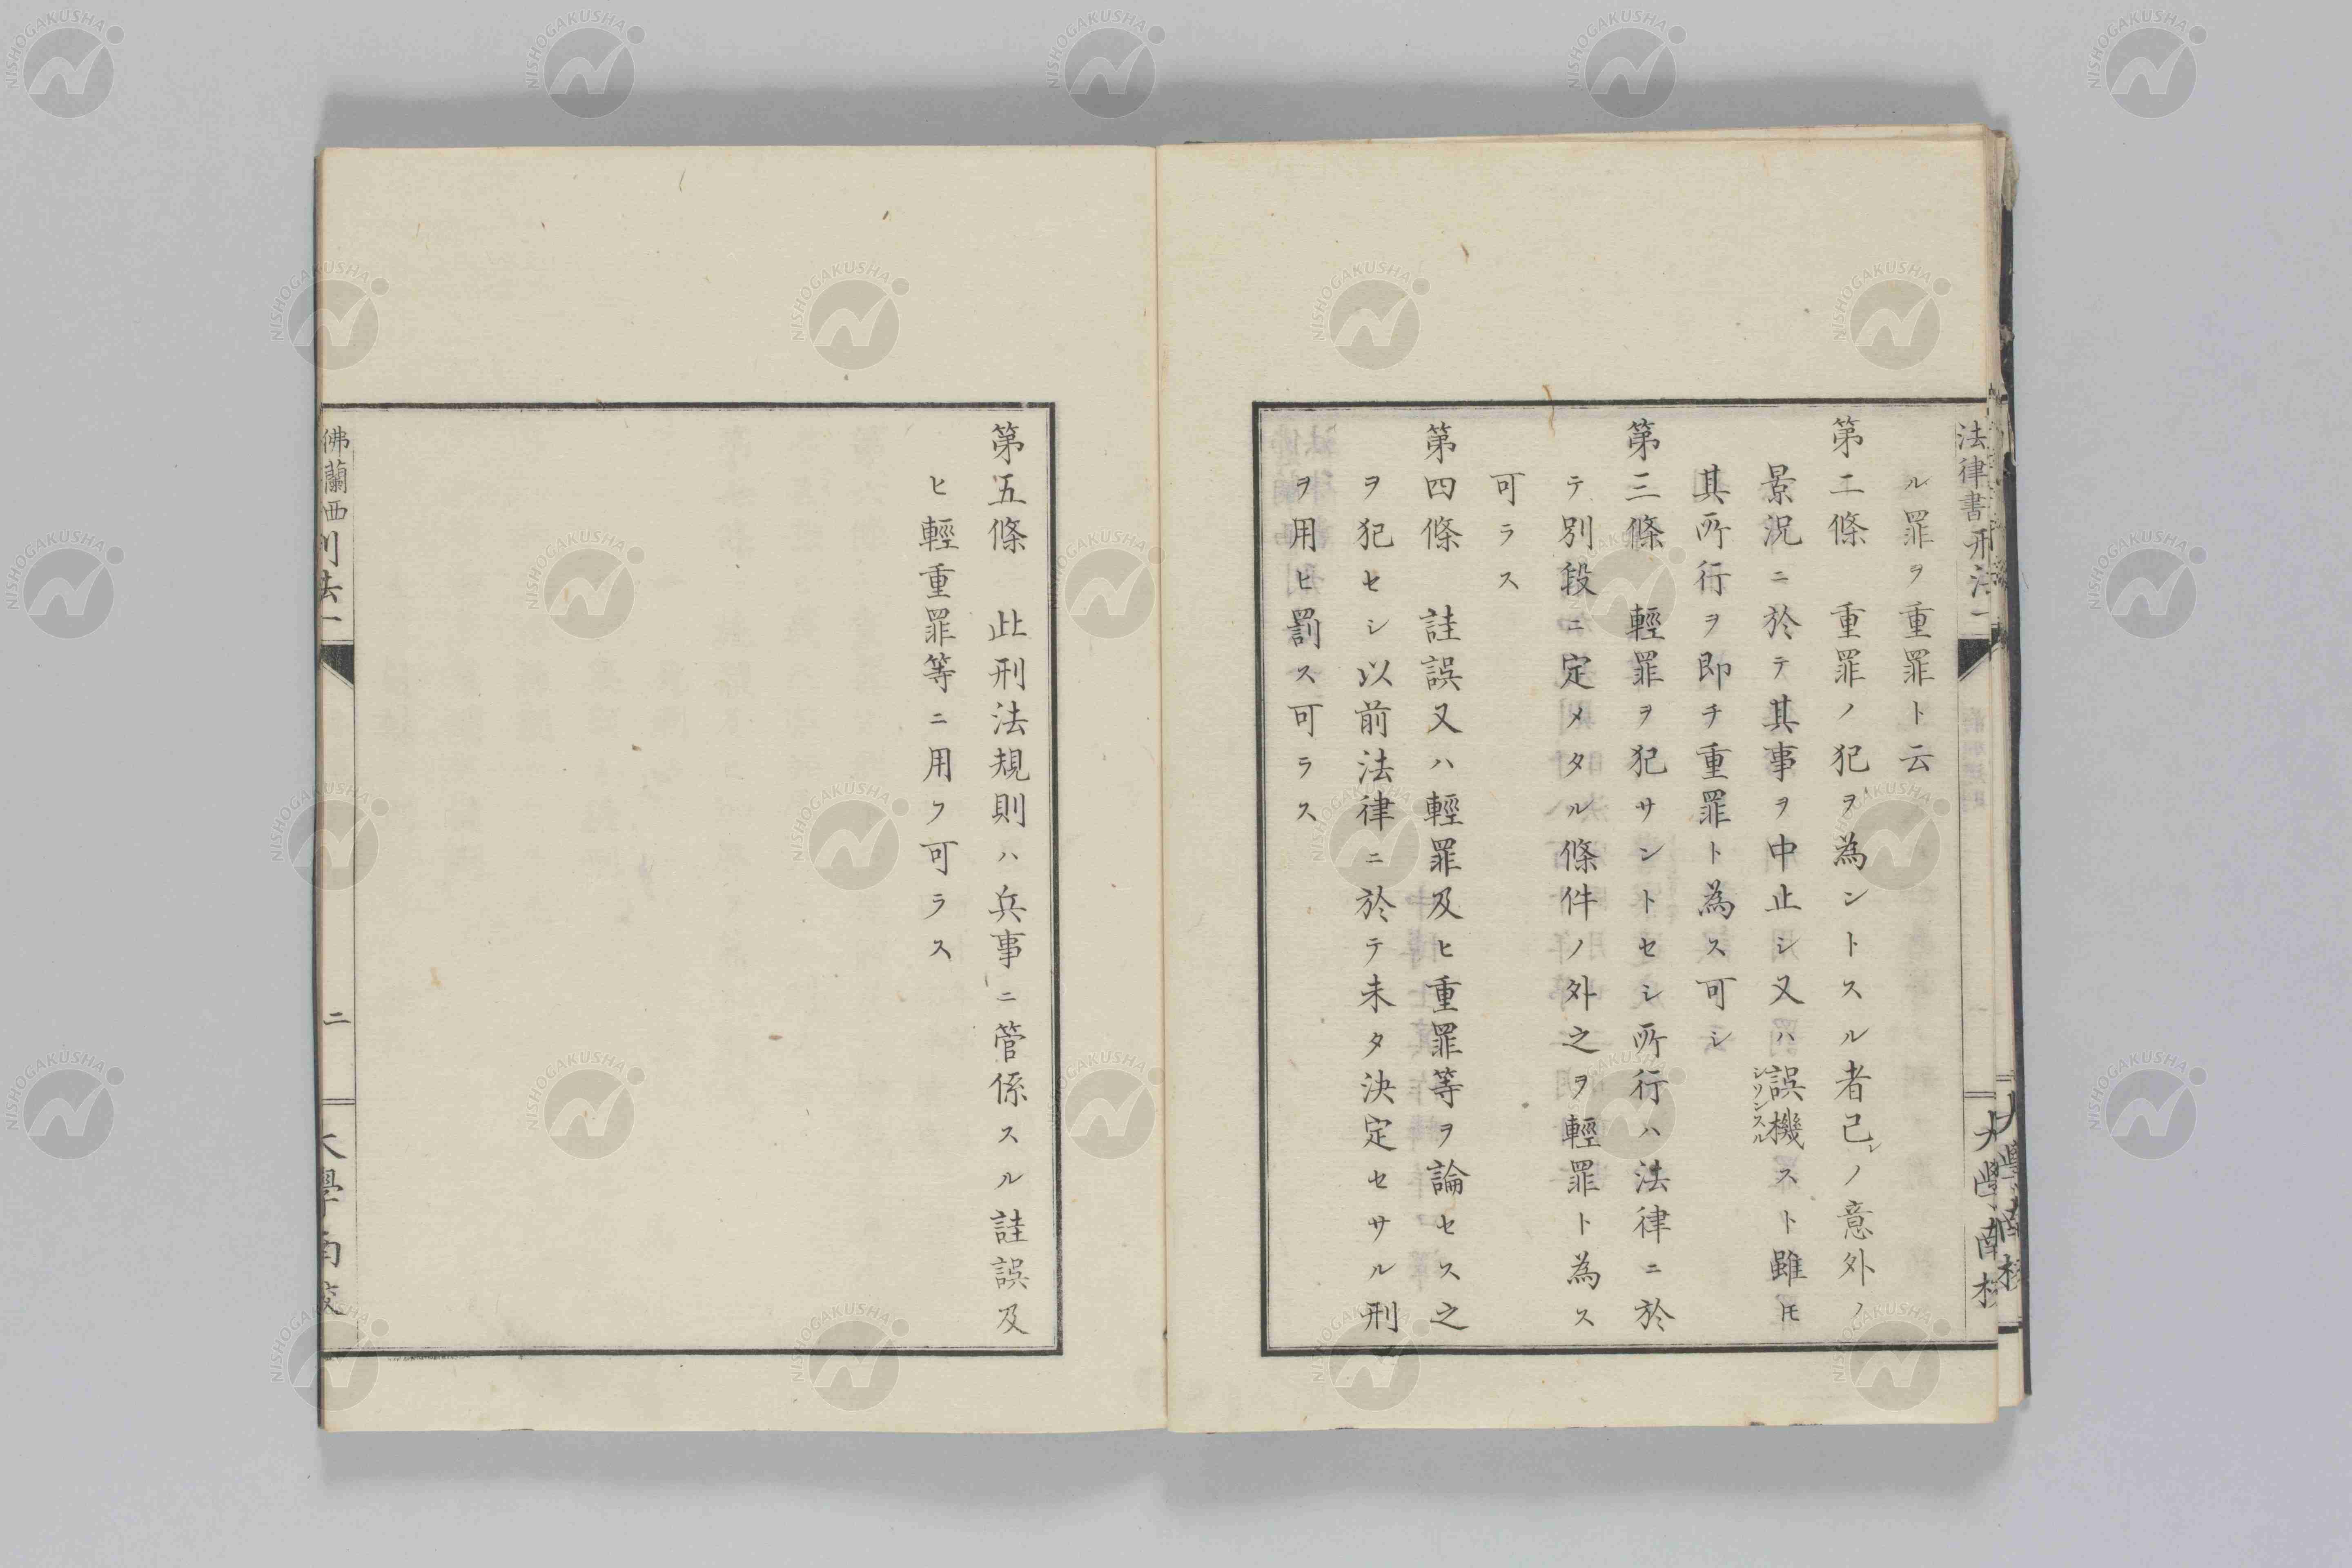 法律書刑法一
ル罪ヲ重罪ト云
第二條　重罪ノ犯ヲ為ントスル者己レノ意外ノ
景況ニ於テ其事ヲ中止シ又ハ誤機スト雖モ
シソンスル
其所行ヲ即チ重罪ト為ス可シ
第三條　輕罪ヲ犯サントセシ所行ハ法律ニ於
テ別段ニ定メタル條件ノ外之ヲ輕罪ト為ス
可ラス
第四條　詿誤又ハ輕罪及ヒ重罪等ヲ論セス之
ヲ犯セシ以前法律ニ於テ未タ決定セサル刑
ヲ用ヒ罰ス可ラス
第五條　此刑法規則ハ兵事ニ管係スル詿誤及
ヒ輕重罪等ニ用フ可ラス
佛蘭西刑法一
二
大學南校
大學南校
NISHOGAKUSHA